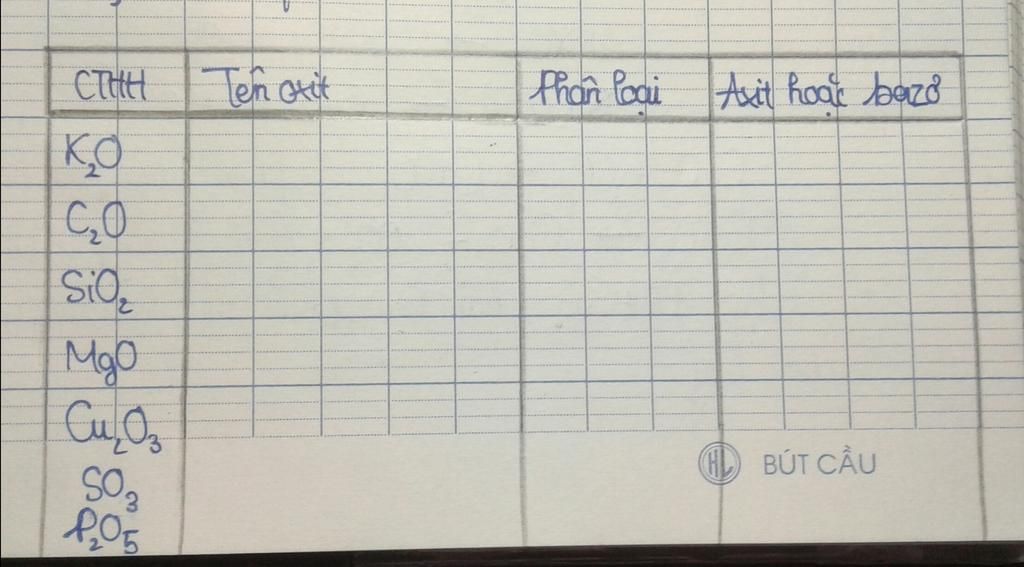 CTHH Tên oxit Phân loại Axit hoặc bazơ
K₂O
C₂O
SiO₂
MgO
Cu₂O₃
SO₃
P₂O₅
HL BÚT CẦU